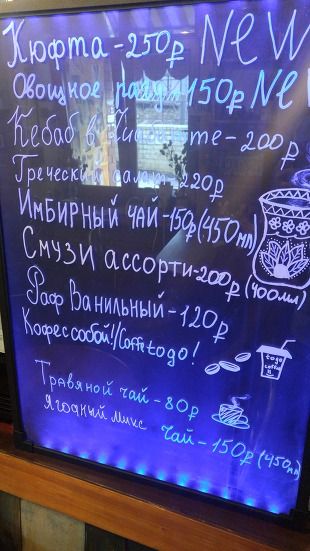 Кюфта - 250₽ NEW
Овощное рагу 150₽ NEW
Кебаб в - 200₽
Греческий салат - 220₽
Имбирный чай - 150₽ (450мл)
Смузи ассорти - 200₽ (400мл)
Раф Ванильный - 120₽
Кофе с собой!/Coffe to go!
to go
coffee
Травяной чай - 80₽
Ягодный микс чай - 150₽ (450мл)